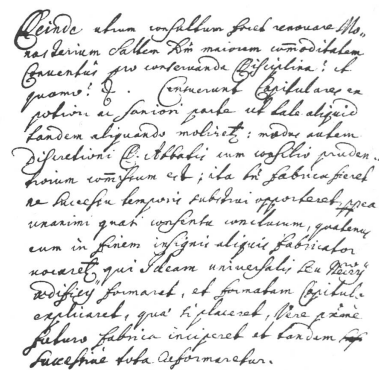 Deinde utrum consultum foret renovare Mo-
nasterium saltem ad maiorem com̃oditatem
Conventus pro conservanda Disciplina? et
quomo? Censuerunt Capitulares ex
potiori ac saniori parte ut tale aliquid
tandem aliquando moliret; modus autem
discretioni D. Abbatis cum consilio pruden-
tiorum com̃issum est; ita tñ fabrica fieret
ne successu temporis substrui opporteret,
unanimi quasi consensu conclusum, quatenus
eum in finem insignis aliquis fabricator
vocaret, qui Ideam universalis seu
ædificÿ formaret, et formatam Capitul.
explicaret, quã si placeret, Vere
futuro fabrica inciperet et tandem
successive tota reformaretur.